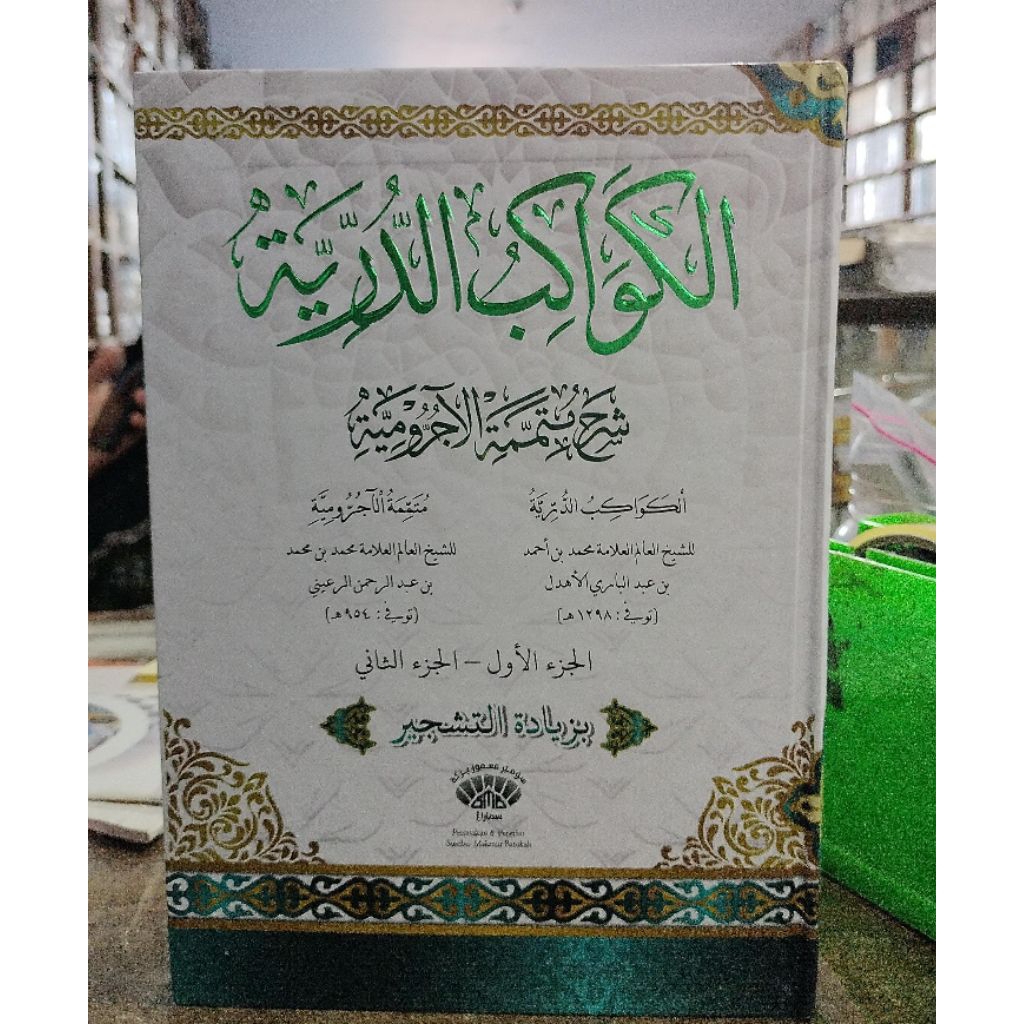 الكَوَاكِبُ الدُّرِّيَّةُ
شَرْحُ مُتَمِّمَةِ الْآجُرُّومِيَّةِ
ألكَوَاكِبُ الدُّرِّيَّةُ
للشيخ العالم العلامة محمد بن أحمد
بن عبد الباري الأهدل
(توفي: ١٢٩٨ هـ)
مُتَمِّمَةُ الْآجُرُّومِيَّةِ
للشيخ العالم العلامة محمد بن محمد
بن عبد الرحمن الرعيني
(توفي: ٩٥٤ هـ)
الجزء الأول – الجزء الثاني
بزيادة التشجير
سومبر معمور بركة
سمارغ
Percetakan & Penerbit
Sumber Makmur Barokah